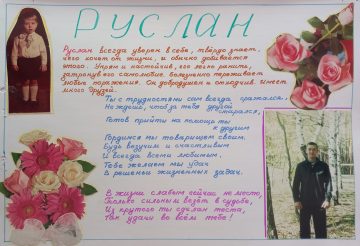 РУСЛАН
Руслан всегда уверен в себе, твёрдо знает,
чего хочет от жизни, и обычно добивается
этого. Упрям и настойчив, его легко ранить,
затронув его самолюбие. Болезненно переживает
любые поражения. Он добродушен и отходчив. Имеет
много друзей.
Ты с трудностями сам всегда сражался,
Не ждал, чтоб за тебя другой
старался,
Готов прийти на помощь ты
к другим
Гордимся мы товарищем своим.
Будь везучим и счастливым
И всегда всеми любимым,
Тебе желаем мы удач
В решеньи жизненных задач.
В жизни слабым сейчас не место,
Только сильным везёт в судьбе,
Из крутого ты сделан теста,
Так удачи во всём тебе!